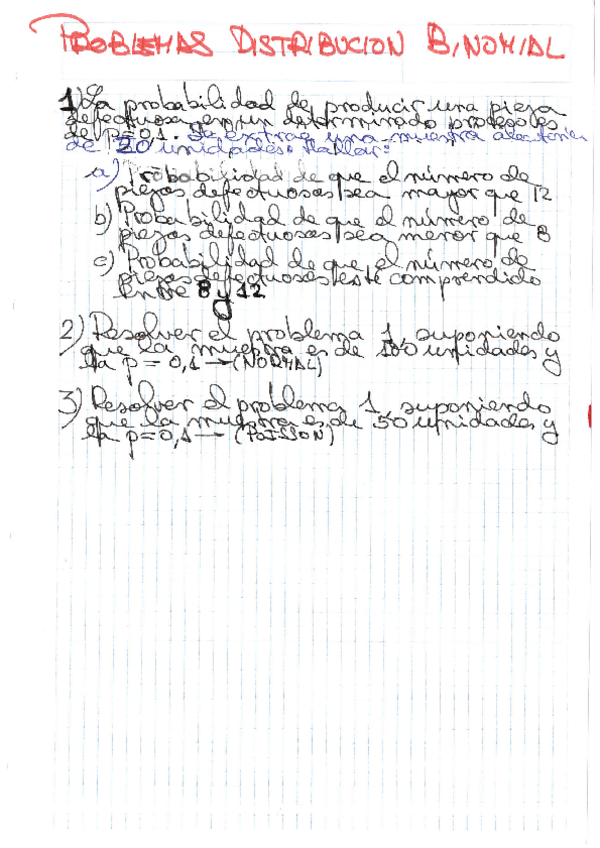 PROBLEMAS DISTRIBUCION BINOMIAL
1) La probabilidad de producir una pieza
defectuosa en un determinado proceso es
de p=0,1. Se extrae una muestra aleatoria
de 20 unidades. Hallar:
a) Probabilidad de que el número de
piezas defectuosas sea mayor que 12
b) Probabilidad de que el número de
piezas defectuosas sea menor que 8
c) Probabilidad de que el número de
piezas defectuosas esté comprendido
entre 8 y 12
2) Resolver el problema 1, suponiendo
que la muestra es de 100 unidades y
la p = 0,1 → (NORMAL)
3) Resolver el problema 1, suponiendo
que la muestra es de 50 unidades y
la p=0,1 → (POISSON)